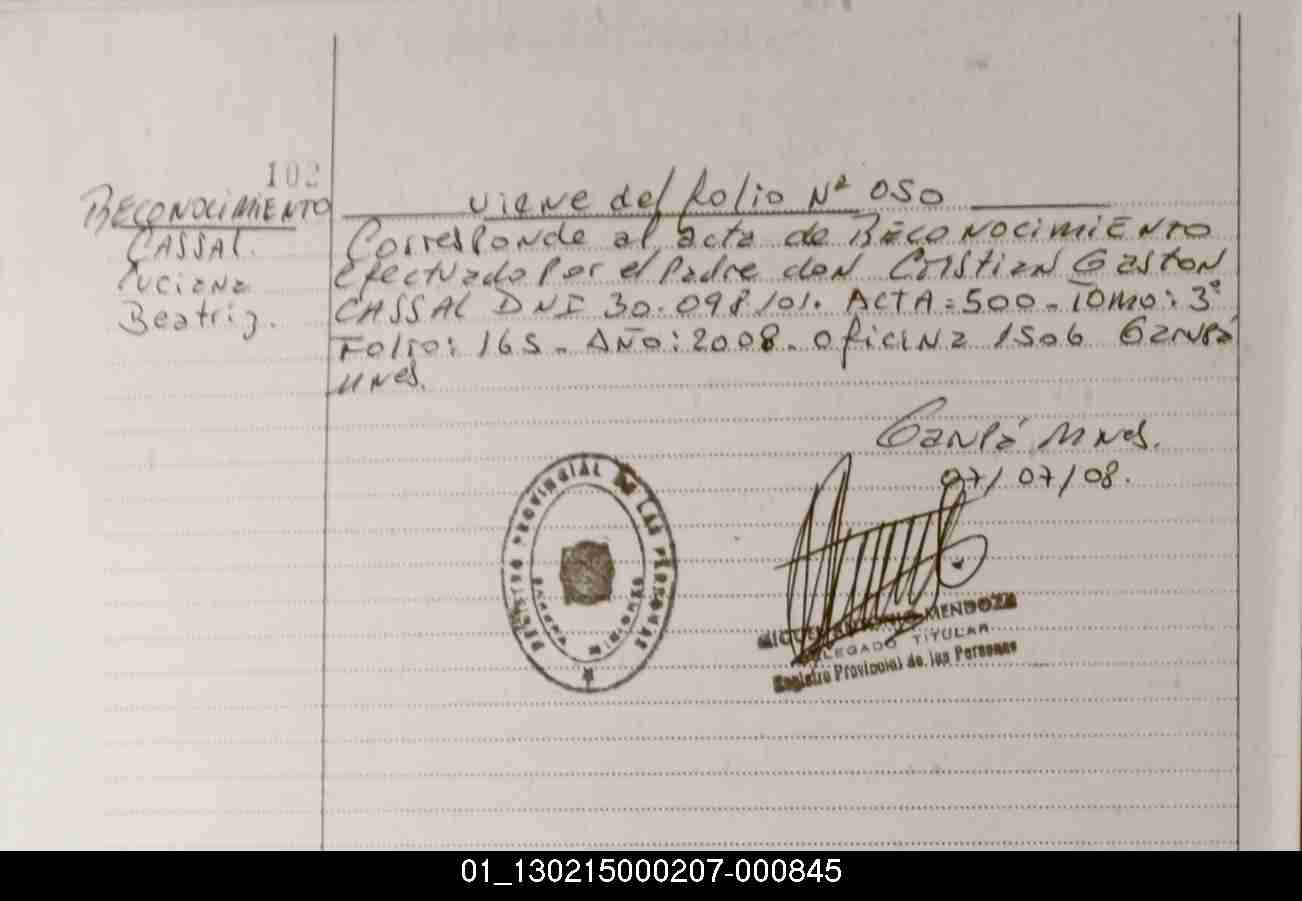 102
RECONOCIMIENTO
CASSAL.
Luciana
Beatriz.
viene del folio Nº 050
Corresponde al acta de RECONOCIMIENTO
efectuado por el padre don Cristian Gaston
CASSAL DNI 30.098.101. ACTA = 500 - Tomo: 3º
Folio: 165 - Año: 2008 - oficina 1506 Garupá
Mnes.
Garupá Mnes.
07/07/08.
REGISTRO PROVINCIAL DE LAS PERSONAS
MENDOZA
DELEGADO TITULAR
Registro Provincial de las Personas
01_130215000207-000845